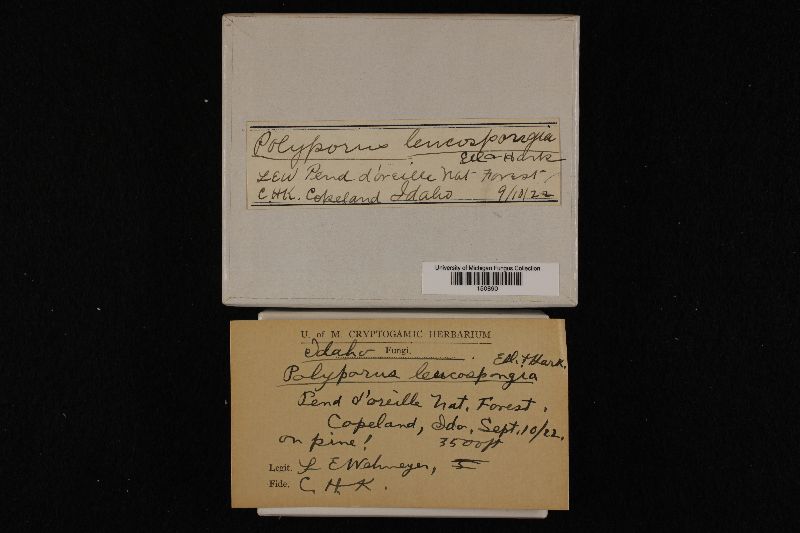 Polyporus leucospongia
Ell & Hark
LEW Pend d'oreille Nat Forest
C.H.K. Copeland Idaho 9/10/22
University of Michigan Fungus Collection
U. of M. CRYPTOGAMIC HERBARIUM
Idaho Fungi.
Ell. & Hark.
Polyporus leucospongia
Pend d'oreille Nat. Forest.
Copeland, Ido, Sept. 10/22.
on pine! 3500ft
Legit. L E Wehmeyer,
Fide. C. H. K.